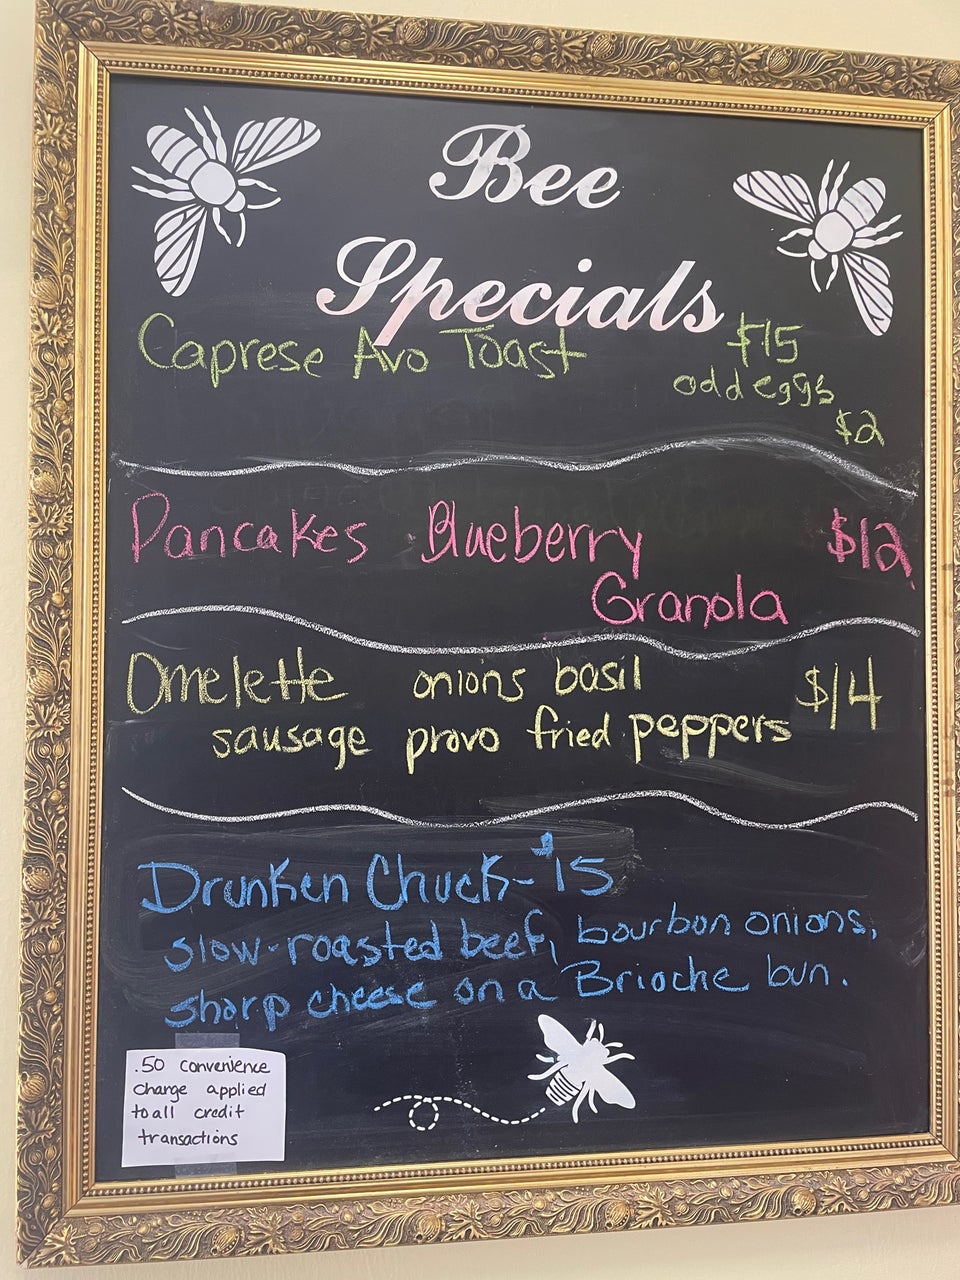 Bee
Specials
Caprese Avo Toast $15
add eggs
$2
Pancakes Blueberry $12
Granola
Omelette onions basil $14
sausage provo fried peppers
Drunken Chuck - $15
slow-roasted beef, bourbon onions,
sharp cheese on a Brioche bun.
.50 convenience
charge applied
to all credit
transactions